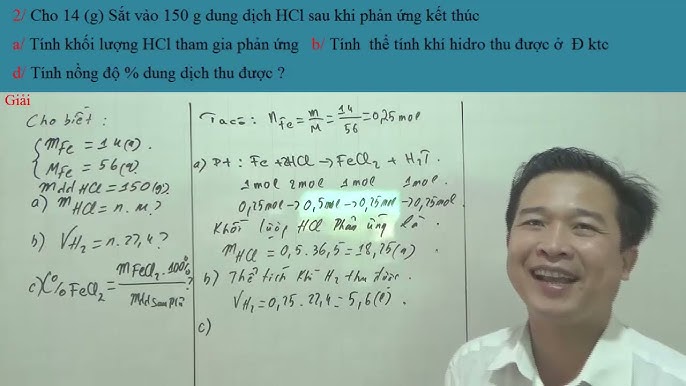 2/ Cho 14 (g) Sắt vào 150 g dung dịch HCl sau khi phản ứng kết thúc
a/ Tính khối lượng HCl tham gia phản ứng b/ Tính thể tính khí hidro thu được ở Đ ktc
d/ Tính nồng độ % dung dịch thu được ?
Giải
Cho biết :
mFe = 14(g).
MFe = 56(g).
mdd HCl = 150(g).
a) mHCl = n.M?
b) VH2 = n.22,4?
c) C% FeCl2 = mFeCl2.100% / mdd sau pư ?
Ta có : nFe = m/M = 14/56 = 0,25 mol
a) Pt : Fe + 2HCl → FeCl2 + H2↑.
1mol 2mol 1mol 1mol.
0,25mol → 0,5mol → 0,25mol → 0,25mol.
Khối lượng HCl phản ứng là
mHCl = 0,5.36,5 = 18,25(g)
b) Thể tích khí H2 thu được.
VH2 = 0,25.22,4 = 5,6(l).
c)